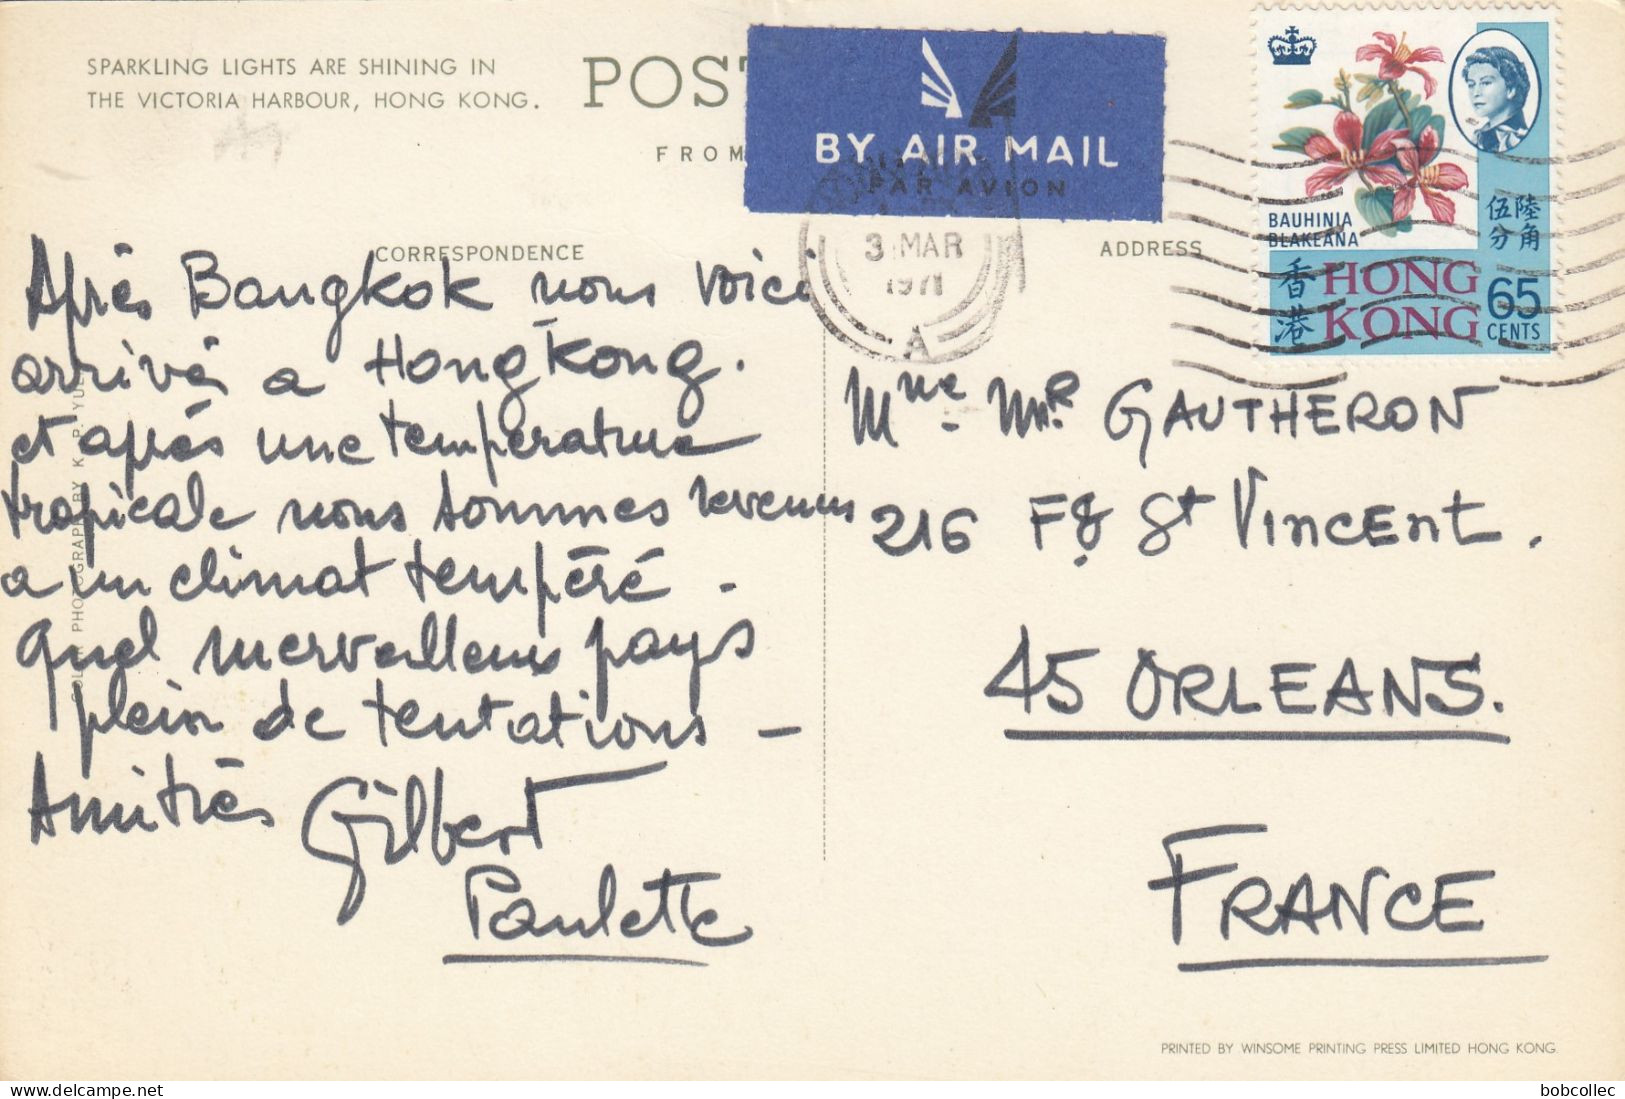 SPARKLING LIGHTS ARE SHINING IN
THE VICTORIA HARBOUR, HONG KONG.
POST
FROM
BY AIR MAIL
PAR AVION
3 MAR
1971
A
BAUHINIA
BLAKEANA
伍分
陸角
香港
HONG
KONG
65
CENTS
CORRESPONDENCE
ADDRESS
Après Bangkok nous voici
arrivés a Hong Kong.
et après une température
tropicale nous sommes revenus
a un climat tempéré -
Quel merveilleux pays
plein de tentations -
Amitiés Gilbert
Paulette
Mme Mr GAUTHERON
216 Fg St Vincent.
45 ORLEANS.
FRANCE
PHOTOGRAPH BY K. P. YU
PRINTED BY WINSOME PRINTING PRESS LIMITED HONG KONG.
bobcollec